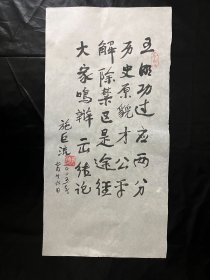 王明功过应两分
历史原貌才公平
解除禁区是途径
大家鸣辩出结论
施巨流